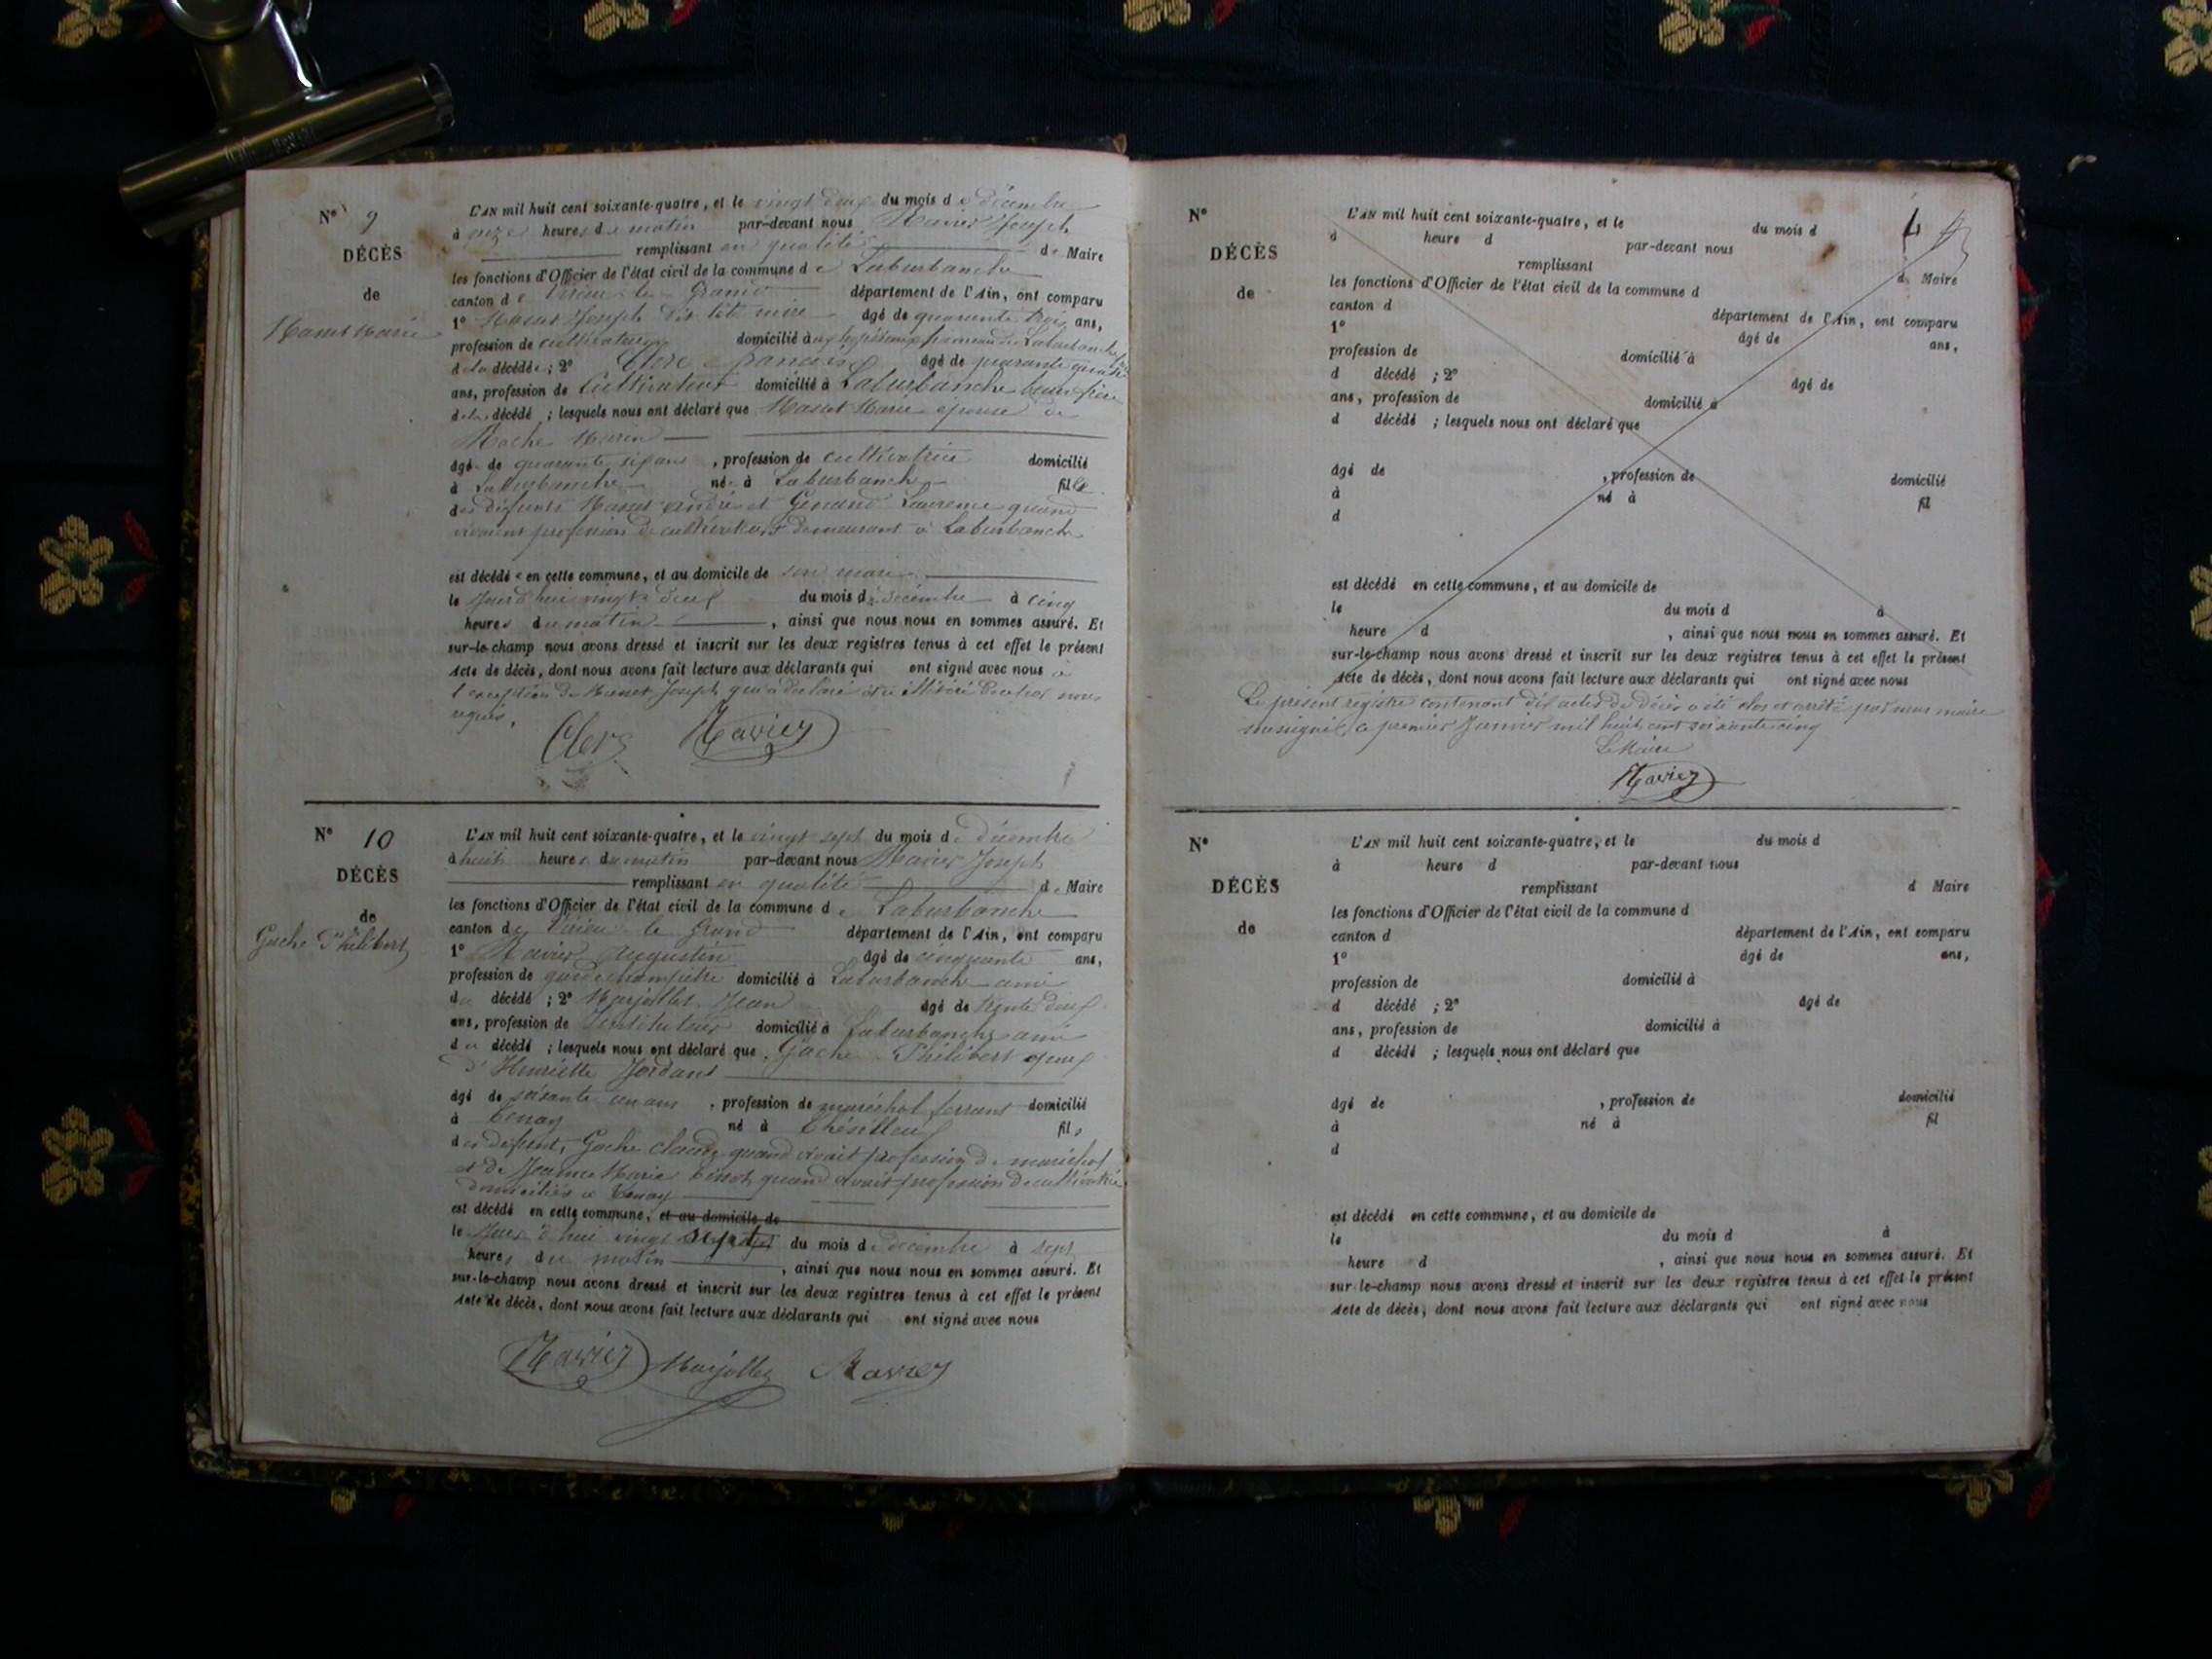 N° 9
DÉCÈS
de
Masset Marie
L'AN mil huit cent soixante-quatre, et le vingt deux du mois de décembre
à onze heures du matin par-devant nous Ravier Joseph
remplissant en qualité de Maire
les fonctions d'Officier de l'état civil de la commune de Laburbanche
canton de Virieu le Grand département de l'Ain, ont comparu
1° Masset Joseph dit âgé de quarante trois ans,
profession de cultivateur domicilié hameau de Laburbanche
de la décédée ; 2° Clerc françois âgé de quarante quatre
ans, profession de Cultivateur domicilié à Laburbanche beau frère
de la décédé ; lesquels nous ont déclaré que Masset Marie épouse de
Roche
âgé de quarante six ans , profession de cultivatrice domicilié
à Laburbanche né à Laburbanche fille
des défunts Masset andré et Genand Laurence quand
vivaient profession de cultivateurs demeurant à Laburbanche
est décédée en cette commune, et au domicile de son mari
le jourd'hui vingt deux du mois de décembre à cinq
heures du matin , ainsi que nous nous en sommes assuré. Et
sur-le-champ nous avons dressé et inscrit sur les deux registres tenus à cet effet le présent
Acte de décès, dont nous avons fait lecture aux déclarants qui ont signé avec nous à
l'exception de Masset Joseph qui a déclaré être illitéré de ce par nous
requis.
Clerc Ravier
N° 10
DÉCÈS
de
Gache Philibert
L'AN mil huit cent soixante-quatre, et le vingt sept du mois de décembre
à huit heures du matin par-devant nous Ravier Joseph
remplissant en qualité de Maire
les fonctions d'Officier de l'état civil de la commune de Laburbanche
canton de Virieu le Grand département de l'Ain, ont comparu
1° Ravier Augustin âgé de cinquante ans,
profession de garde champêtre domicilié à Laburbanche ami
du décédé ; 2° Marjollet Jean âgé de trente deux
ans, profession de Instituteur domicilié à Laburbanche ami
du décédé ; lesquels nous ont déclaré que Gache Philibert époux
d'Henriette Jordant
âgé de soixante un ans , profession de maréchal ferrant domicilié
à Tenay né à Thézillieu fils
des défunt, Gache claude quand vivait profession de maréchal
et de Jeanne Marie quand vivait profession de cultivatrice
domiciliés à Tenay
est décédé en cette commune, et au domicile de
le jour d'hui vingt sept du mois de décembre à sept
heures du matin , ainsi que nous nous en sommes assuré. Et
sur-le-champ nous avons dressé et inscrit sur les deux registres tenus à cet effet le présent
Acte de décès, dont nous avons fait lecture aux déclarants qui ont signé avec nous
Ravier Marjollet Ravier
N°
DÉCÈS
de
L'AN mil huit cent soixante-quatre, et le du mois d
à heure d par-devant nous
remplissant d Maire
les fonctions d'Officier de l'état civil de la commune d
canton d département de l'Ain, ont comparu
1° âgé de ans,
profession de domicilié à
d décédé ; 2° âgé de
ans, profession de domicilié à
d décédé ; lesquels nous ont déclaré que
âgé de , profession de domicilié
à né à fil
d
est décédé en cette commune, et au domicile de
le du mois d à
heure d , ainsi que nous nous en sommes assuré. Et
sur-le-champ nous avons dressé et inscrit sur les deux registres tenus à cet effet le présent
Acte de décès, dont nous avons fait lecture aux déclarants qui ont signé avec nous
Le présent registre contenant dix actes de décès a été clos et arrêté par nous maire
soussigné, ce premier Janvier mil huit cent soixante cinq
Le Maire
Ravier
N°
DÉCÈS
de
L'AN mil huit cent soixante-quatre, et le du mois d
à heure d par-devant nous
remplissant d Maire
les fonctions d'Officier de l'état civil de la commune d
canton d département de l'Ain, ont comparu
1° âgé de ans,
profession de domicilié à
d décédé ; 2° âgé de
ans, profession de domicilié à
d décédé ; lesquels nous ont déclaré que
âgé de , profession de domicilié
à né à fil
d
est décédé en cette commune, et au domicile de
le du mois d à
heure d , ainsi que nous nous en sommes assuré. Et
sur-le-champ nous avons dressé et inscrit sur les deux registres tenus à cet effet le présent
Acte de décès, dont nous avons fait lecture aux déclarants qui ont signé avec nous